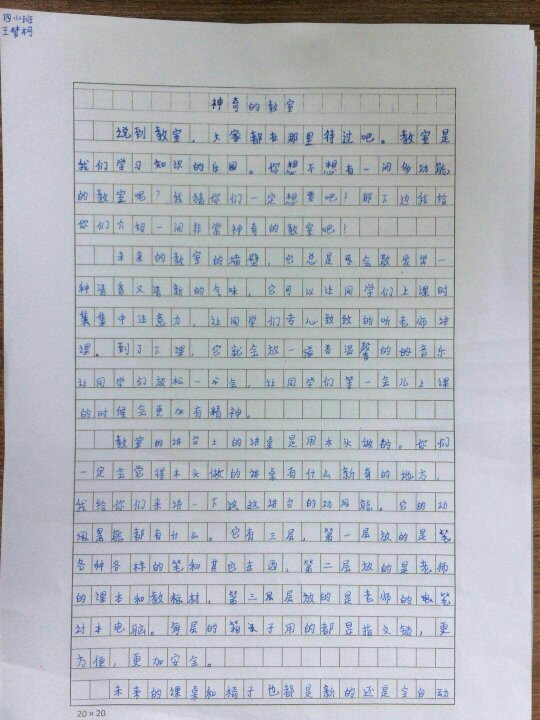 四小班
王梦柯
神奇的教室
说到教室，大家都在那里待过吧。教室是
我们学习知识的乐园。你想不想有一间多功能
的教室呢？我猜你们一定想要吧？那下边我给
你们介绍一间非常神奇的教室吧！
未来的教室的墙壁，它总是会散发着一
种清香又清新的气味，它可以让同学们上课时
集集中注意力，让同学们专心致致的听老师讲
课。到了下课，它就会放一首温馨的的音乐
让同学们放松一会，让同学们等一会儿上课
的时候会更加有精神。
教室的讲台上的讲桌是用木头做的。你们
一定会觉得木头做的讲桌有什么新奇的地方，
我给你们来讲一下这这讲台的功能，它的功
能都有什么。它有三层，第一层放的是笔
各种各样的笔和其它东西，第二层放的是老师
的课本和教材，第三层层放的是老师的电笔
本电脑。每层的箱子用的都是指文锁，更
方便，更加安全。
未来的课桌和椅子也都是新的还是全自动
20×20